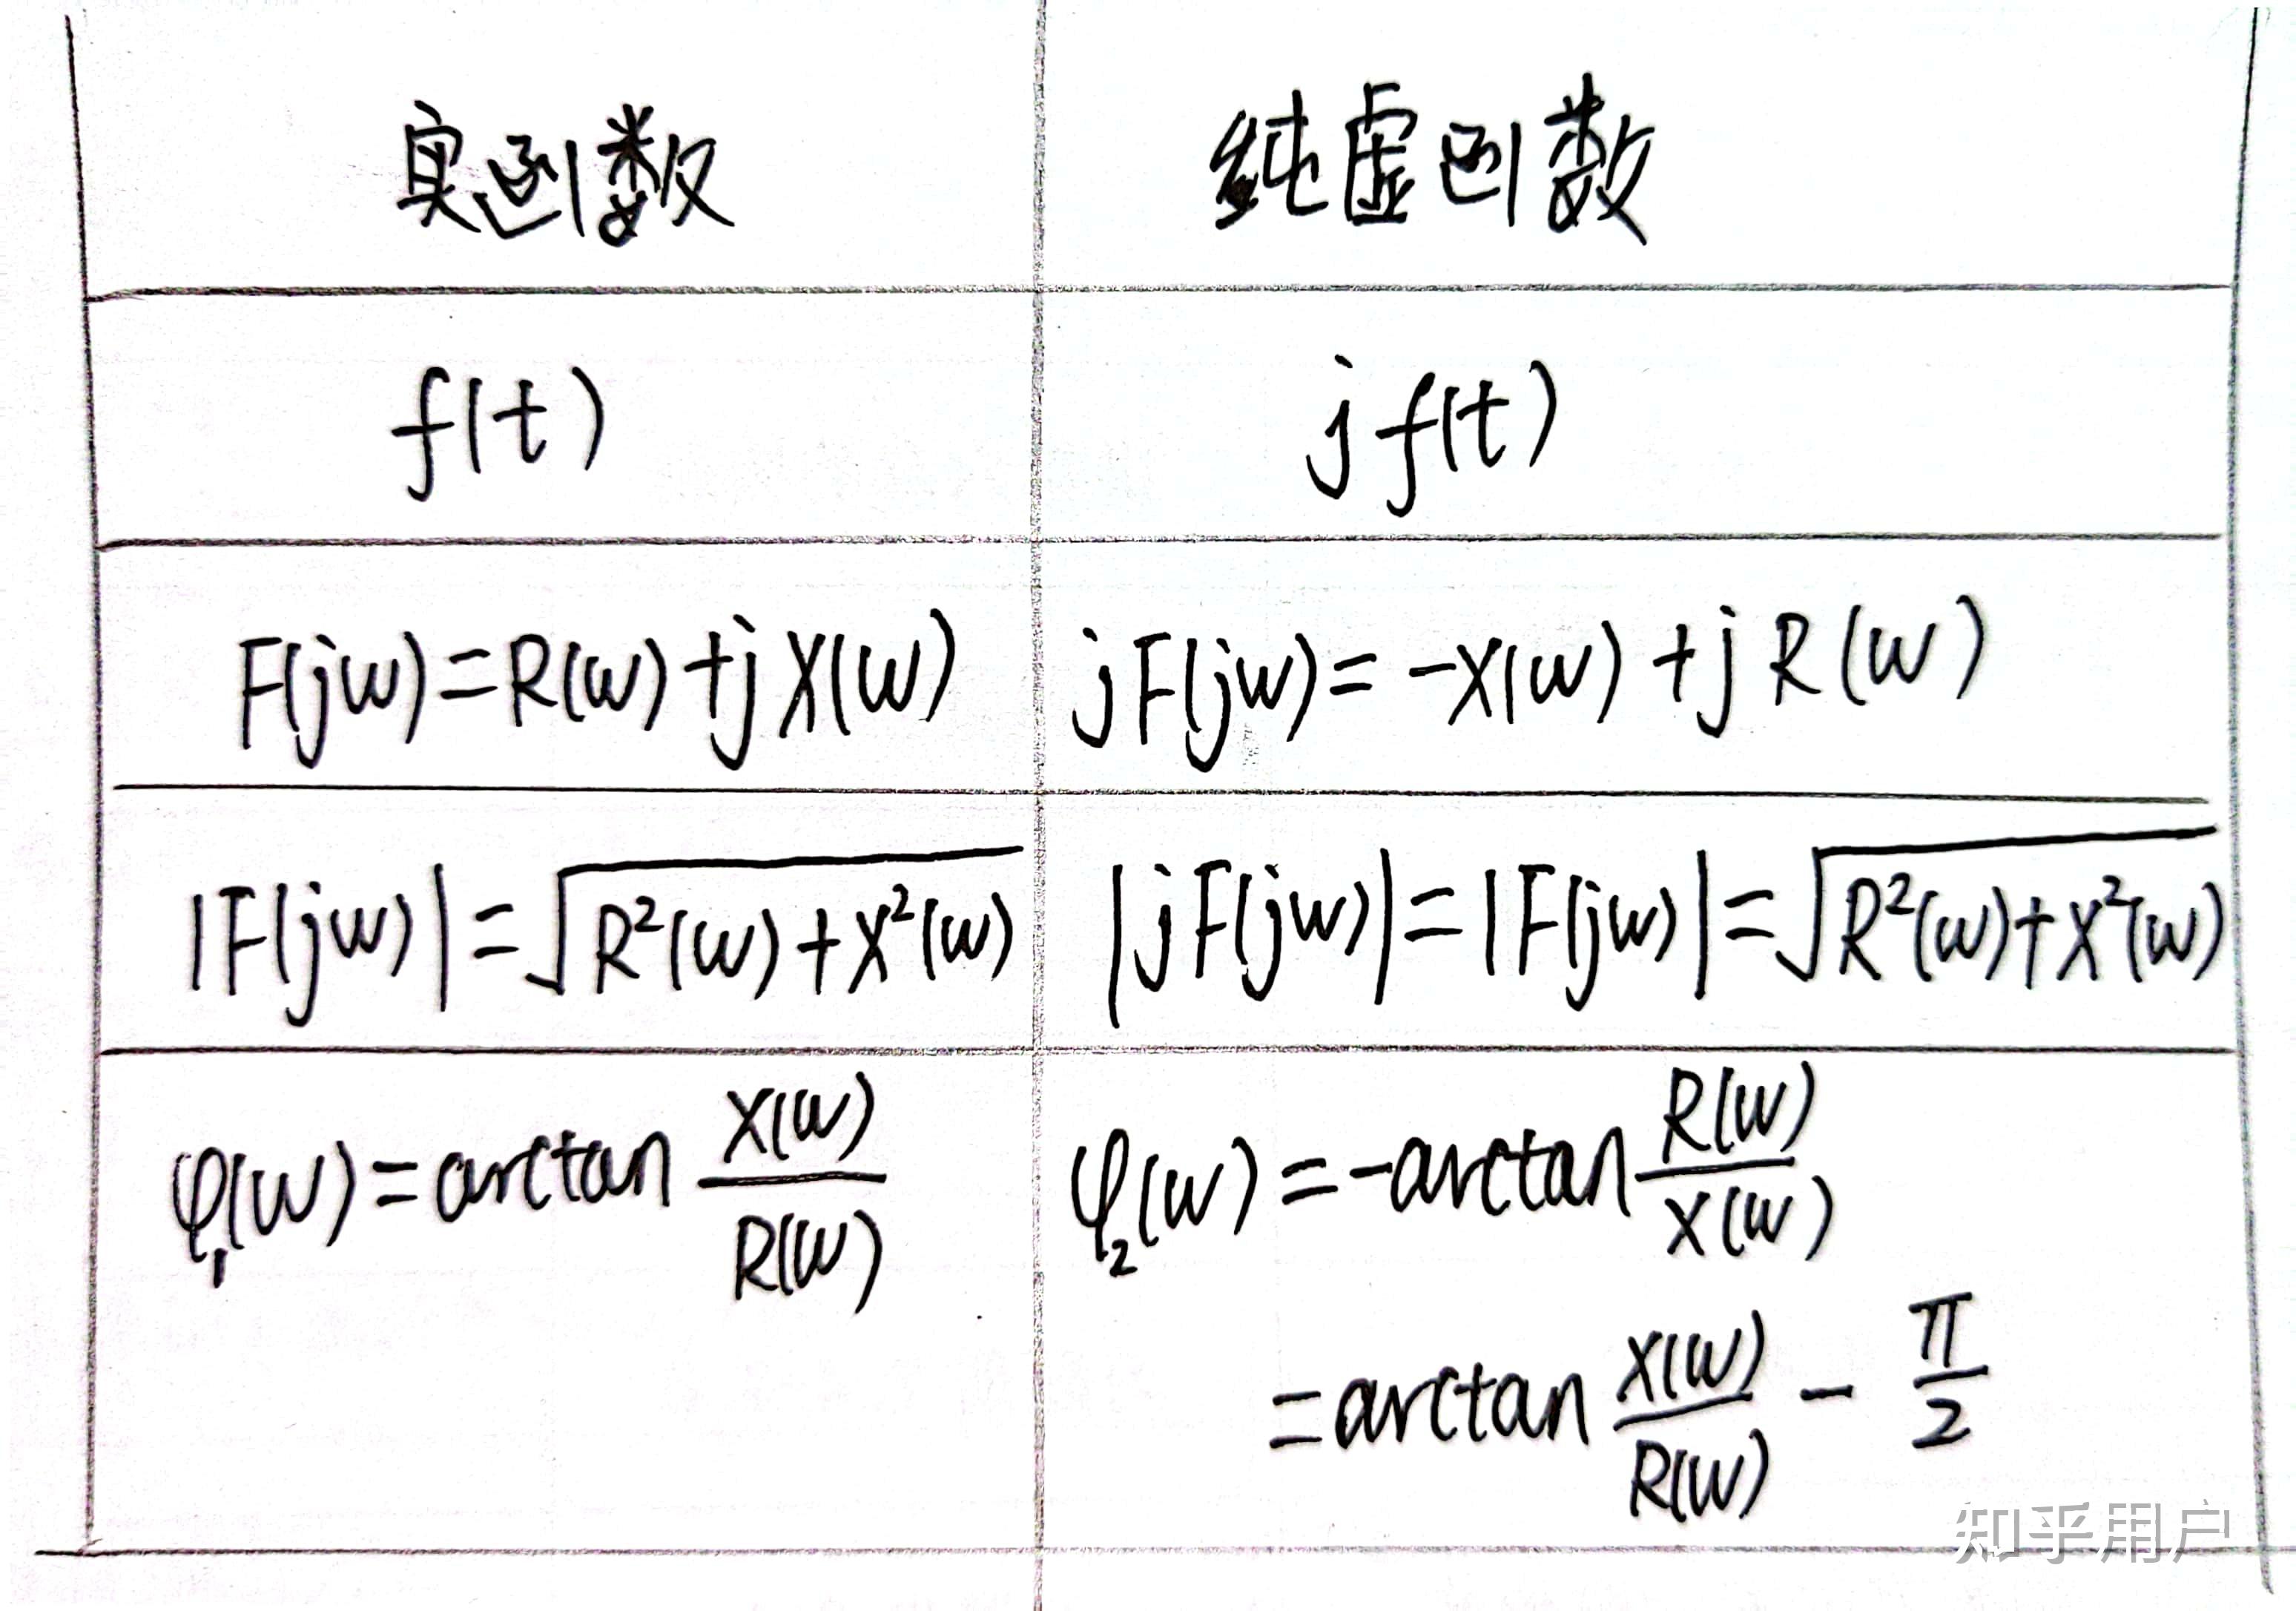 实函数 纯虚函数
f(t) jf(t)
F(jw)=R(w)+jX(w) jF(jw)=-X(w)+jR(w)
|F(jw)|=√R²(w)+X²(w) |jF(jw)|=|F(jw)|=√R²(w)+X²(w)
φ₁(w)=arctan X(w)/R(w) φ₂(w)=-arctan R(w)/X(w)
=arctan X(w)/R(w) - π/2
知乎用户